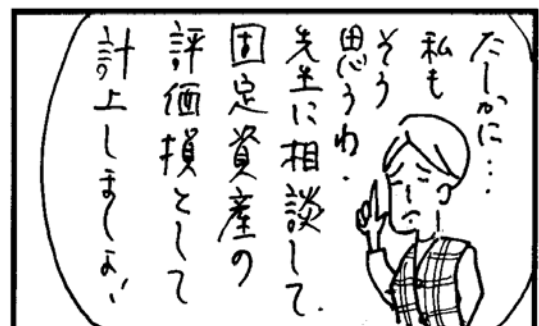 たしかに…
私も
そう
思うわ.
先生に相談して.
固定資産の
評価損として
計上しましょ